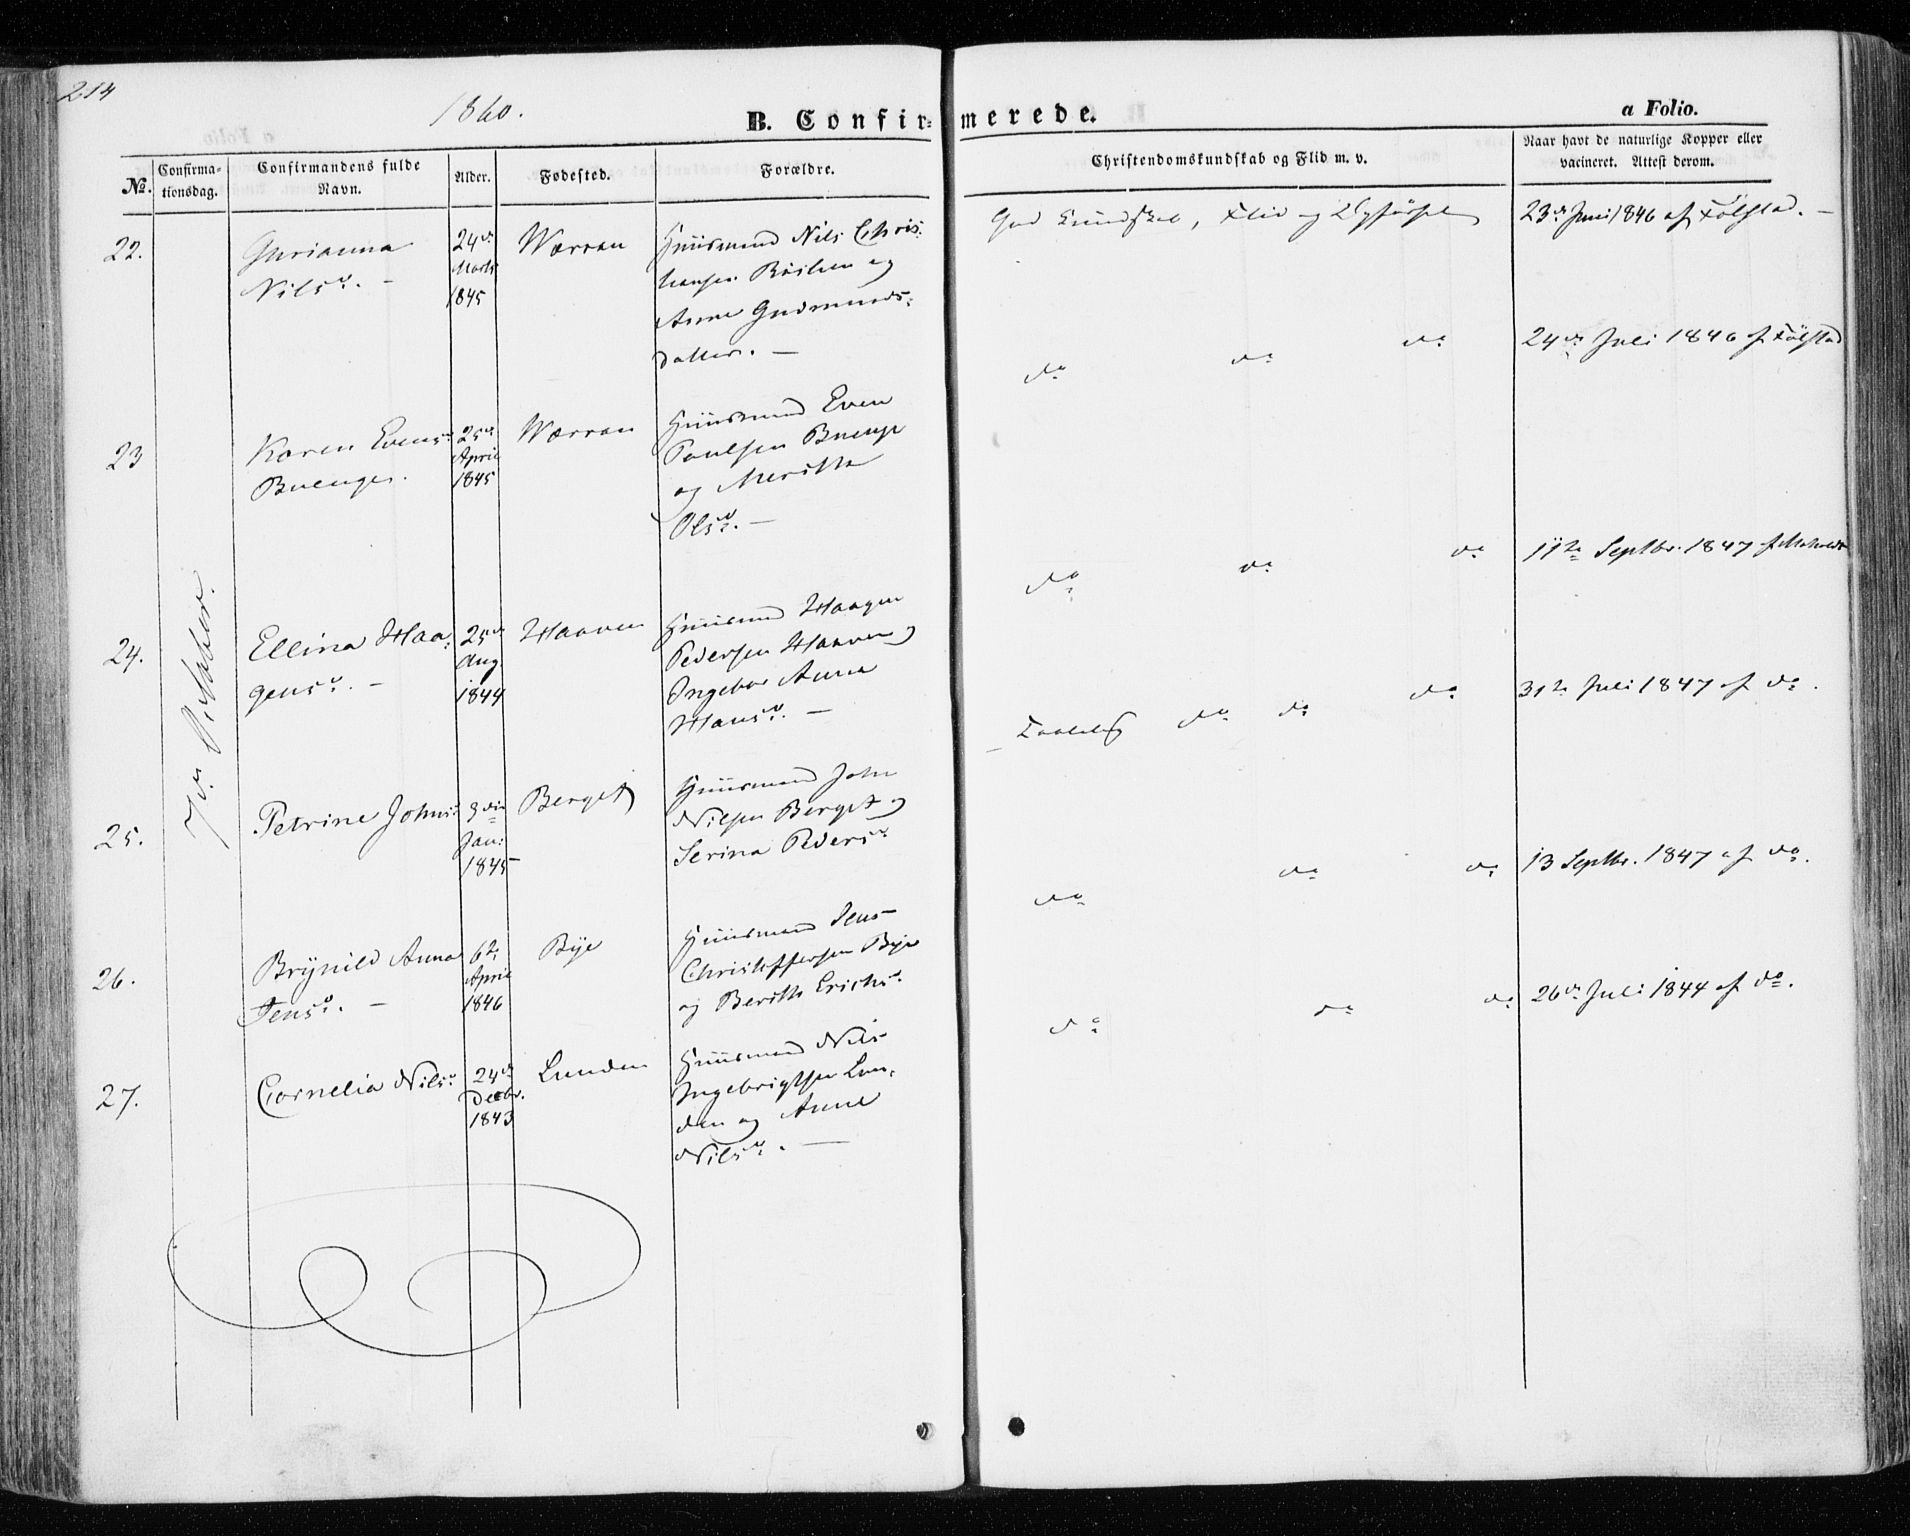 214
1860.
B. Confir-
merede.
a Folio.
No.
Confirma-
tionsdag.
Confirmandens fulde
Navn.
Alder.
Fødested.
Forældre.
Christendomskundskab og Flid m. v.
Naar havt de naturlige Kopper eller
vacineret. Attest derom.
7de October.
22.
Gurianna
Nilsd. -
24de
Marts
1845
Værran
Huusmand Nils Chris-
tiansen og
Anne Gudmunds-
datter. -
God Kundskab, Flid og Opførsel
23de Juni 1846 af Følstad. -
23
Karen Evensd
Buenge.
25de
April
1845
Værran
Huusmand Even
Paulsen Buenge
og Merethe
Olsd. -
do do do
24de Juli 1846 af Følstad
24.
Ellina Haa-
gensd. -
25de
Aug
1844
Haaven
Huusmand Haagen
Pedersen Haaven og
Ingebor Anna
Hansd. -
do do do
11te Septbr. 1847 af
25.
Petrine Johnsd
3die
Jan:
1845
Berget
Huusmand John
Nilsen Berget og
Serina Pedersd
Taalelig do do do
31te Juli 1847 af do.
26.
Brynild Anna
Jensd. -
6te
April
1846
Bye
Huusmand Jens
Christoffersen Bye
og Berith Erichsd.
do do do
13 Septbr. 1847 af do.
27.
Cornelia Nilsd
24de
Decbr.
1843
Lunden
Huusmand Nils
Ingebrigtsen Lun-
den og Anne
Nilsd. -
do do do
26de Juli 1844 af do.